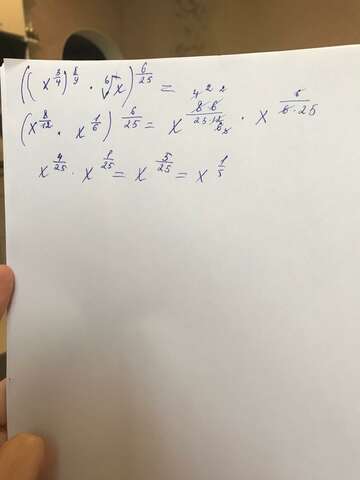 ((x^{3/4})^{8/9} · \sqrt[6]{x})^{6/25} =
(x^{8/12} · x^{1/6})^{6/25} = x^{8·6/25·12} · x^{6/6·25}
x^{4/25} · x^{1/25} = x^{5/25} = x^{1/5}